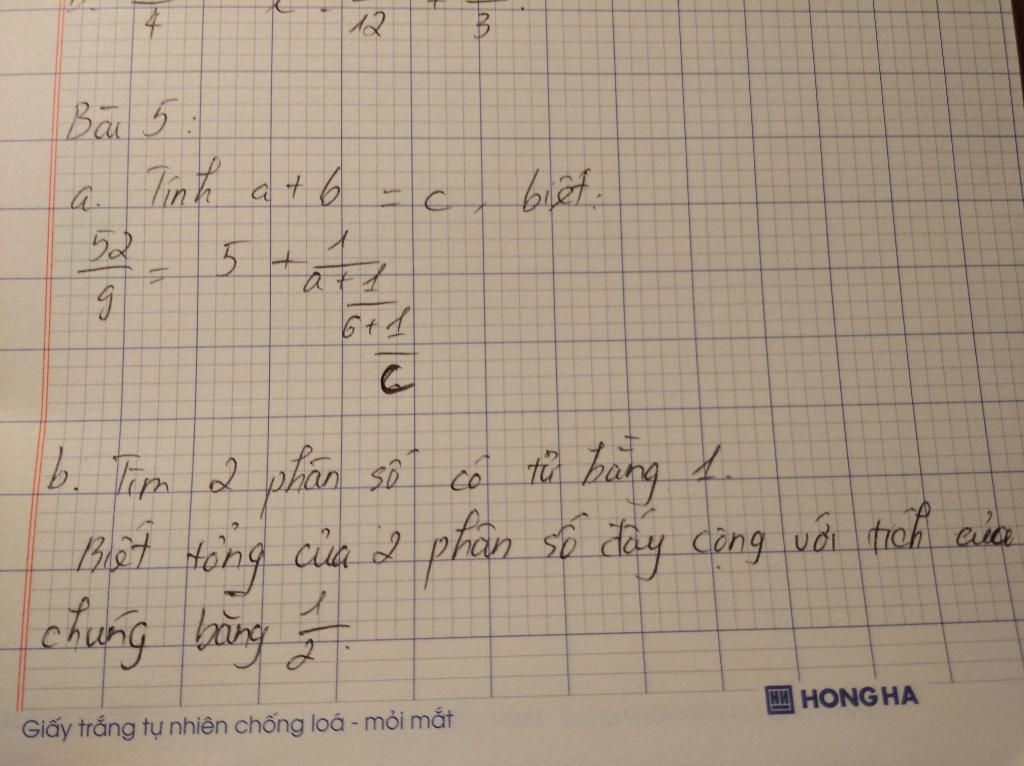 4 12 3
Bài 5:
a. Tính a + b = c, biết:
52/9 = 5 + 1/(a + 1/(6 + 1/c))
b. Tìm 2 phân số có tử bằng 1.
Biết tổng của 2 phân số đấy cộng với tích của
chúng bằng 1/2.
HONG HA
Giấy trắng tự nhiên chống loá - mỏi mắt